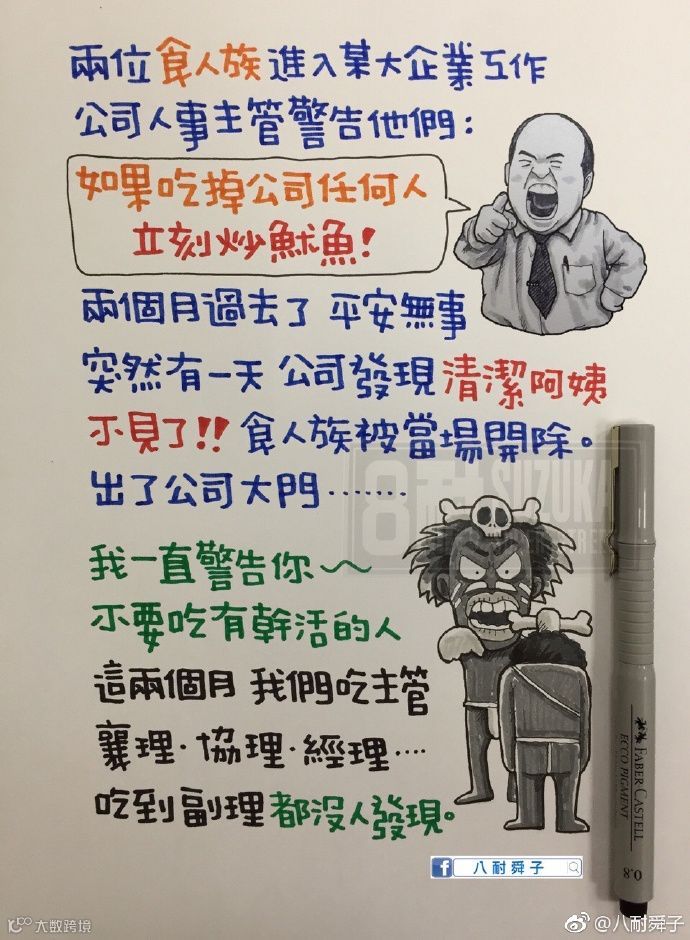 兩位食人族進入某大企業工作
公司人事主管警告他們：
如果吃掉公司任何人
立刻炒魷魚！
兩個月過去了 平安無事
突然有一天 公司發現清潔阿姨
不見了!! 食人族被當場開除。
出了公司大門‧‧‧‧‧‧‧
我一直警告你~~
不要吃有幹活的人
這兩個月 我們吃主管
襄理‧協理‧經理‧‧‧‧
吃到副理都沒人發現。
8耐 SUZUKA
FABER-CASTELL
ECCO PIGMENT
0.8
f 八耐舜子
大数跨境
@八耐舜子